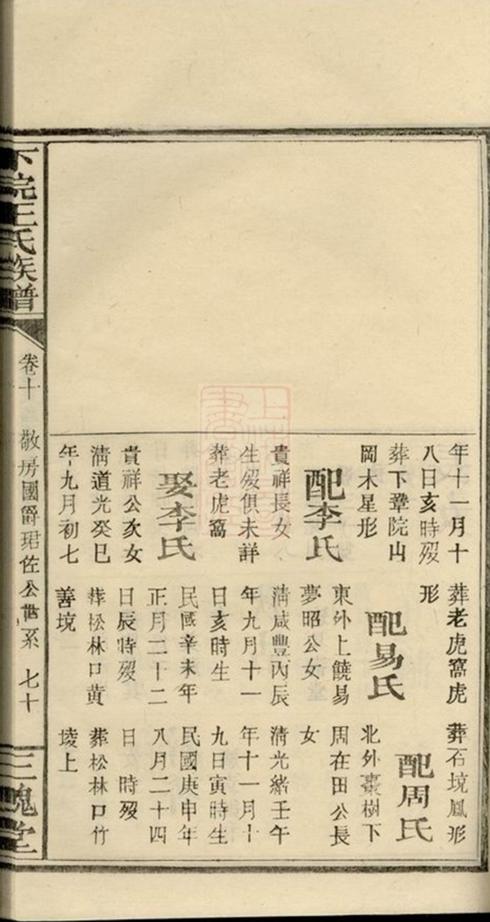 年十一月十
八日亥時歿
葬下章院山
岡木星形
配李氏
貴祥長女
生歿俱未詳
葬老虎窩
娶李氏
貴祥公次女
清道光癸巳
年九月初七
葬老虎窩虎
形
配易氏
東外上饒易
夢昭公女
清咸豐丙辰
年九月十一
日亥時生
民國辛未年
正月二十二
日辰時歿
葬松林口黄
善境
葬石境鳳形
配周氏
北外棗樹下
周在田公長
女
清光緒壬午
年十一月十
九日寅時生
民國庚申年
八月二十四
日 時歿
葬松林口竹
垅上
下院王氏族譜
卷十
敬房國爵珺佐公世系
七十
三槐堂